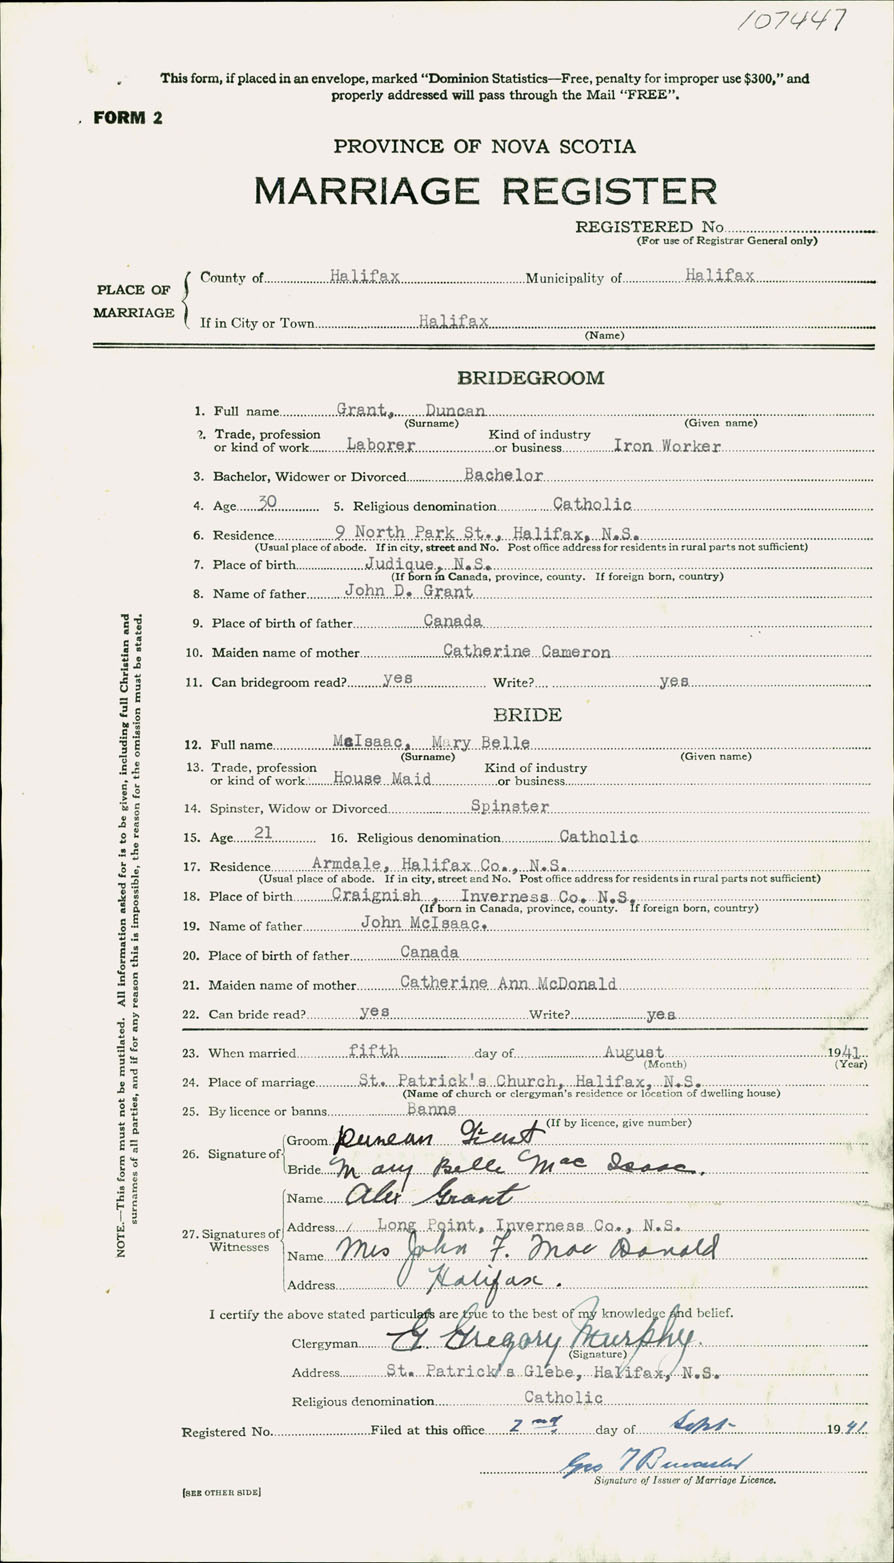 107447
This form, if placed in an envelope, marked “Dominion Statistics—Free, penalty for improper use $300,” and
properly addressed will pass through the Mail “FREE”.
FORM 2
PROVINCE OF NOVA SCOTIA
MARRIAGE REGISTER
REGISTERED No
(For use of Registrar General only)
PLACE OF MARRIAGE
County of Halifax Municipality of Halifax
If in City or Town Halifax
(Name)
BRIDEGROOM
1. Full name Grant, Duncan
(Surname) (Given name)
2. Trade, profession Kind of industry
or kind of work Laborer or business Iron Worker
3. Bachelor, Widower or Divorced Bachelor
4. Age 30 5. Religious denomination Catholic
6. Residence 9 North Park St., Halifax, N.S.
(Usual place of abode. If in city, street and No. Post office address for residents in rural parts not sufficient)
7. Place of birth Judique, N.S.
(If born in Canada, province, county. If foreign born, country)
8. Name of father John D. Grant
9. Place of birth of father Canada
10. Maiden name of mother Catherine Cameron
11. Can bridegroom read? yes Write? yes
BRIDE
12. Full name McIsaac, Mary Belle
(Surname) (Given name)
13. Trade, profession Kind of industry
or kind of work House Maid or business
14. Spinster, Widow or Divorced Spinster
15. Age 21 16. Religious denomination Catholic
17. Residence Armdale, Halifax Co., N.S.
(Usual place of abode. If in city, street and No. Post office address for residents in rural parts not sufficient)
18. Place of birth Craignish , Inverness Co. N.S.
(If born in Canada, province, county. If foreign born, country)
19. Name of father John McIsaac.
20. Place of birth of father Canada
21. Maiden name of mother Catherine Ann McDonald
22. Can bride read? yes Write? yes
23. When married fifth day of August 1941
(Month) (Year)
24. Place of marriage St. Patrick's Church, Halifax, N.S.
(Name of church or clergyman's residence or location of dwelling house)
25. By licence or banns Banns
(If by licence, give number)
26. Signature of
Groom Duncan Grant
Bride Mary Belle Mac Isaac.
27. Signatures of Witnesses
Name Alex Grant
Address Long Point, Inverness Co., N.S.
Name Mrs John F. Mac Donald
Address Halifax.
I certify the above stated particulars are true to the best of my knowledge and belief.
Clergyman G Gregory Murphy.
(Signature)
Address St. Patrick's Glebe, Halifax, N.S.
Religious denomination Catholic
Registered No. Filed at this office 2nd day of Sept- 1941
Geo T
Signature of Issuer of Marriage Licence.
[SEE OTHER SIDE]
NOTE.—This form must not be mutilated. All information asked for is to be given, including full Christian and
surnames of all parties, and if for any reason this is impossible, the reason for the omission must be stated.